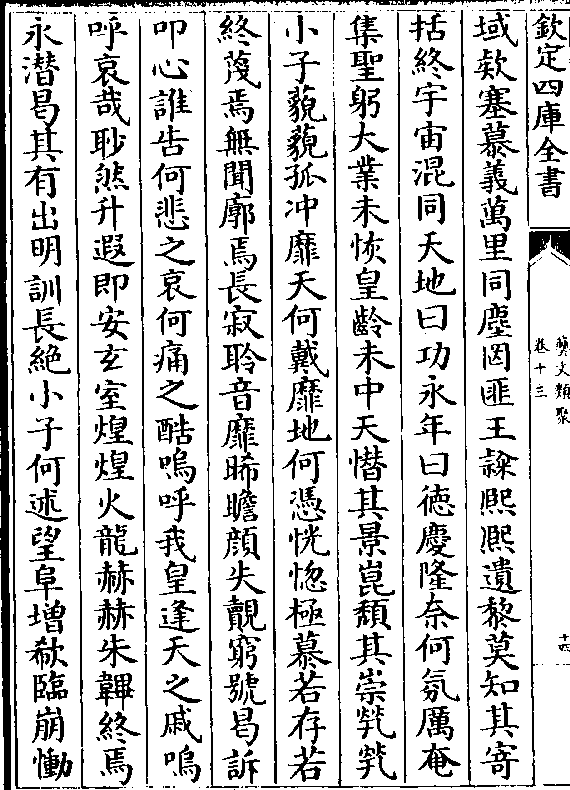 欽定四庫全書
藝文類聚
卷十三
十四
域欵塞慕義萬里同塵罔匪王隸熙熙遺黎莫知其寄
括終宇宙混同天地曰功永年曰德慶隆奈何氛厲奄
集聖躬大業未恢皇齡未中天㬱其景崑頽其崇煢煢
小子藐藐孤冲靡天何戴靡地何憑恍惚極慕若存若
終蔑焉無聞廓焉長寂聆音靡晞瞻顔失覿窮號曷訴
叩心誰告何悲之哀何痛之酷嗚呼我皇逢天之戚嗚
呼哀哉眇然升遐即安玄室煌煌火龍赫赫朱韠終焉
永潜曷其有出明訓長絶小子何述望阜增欷臨崩慟